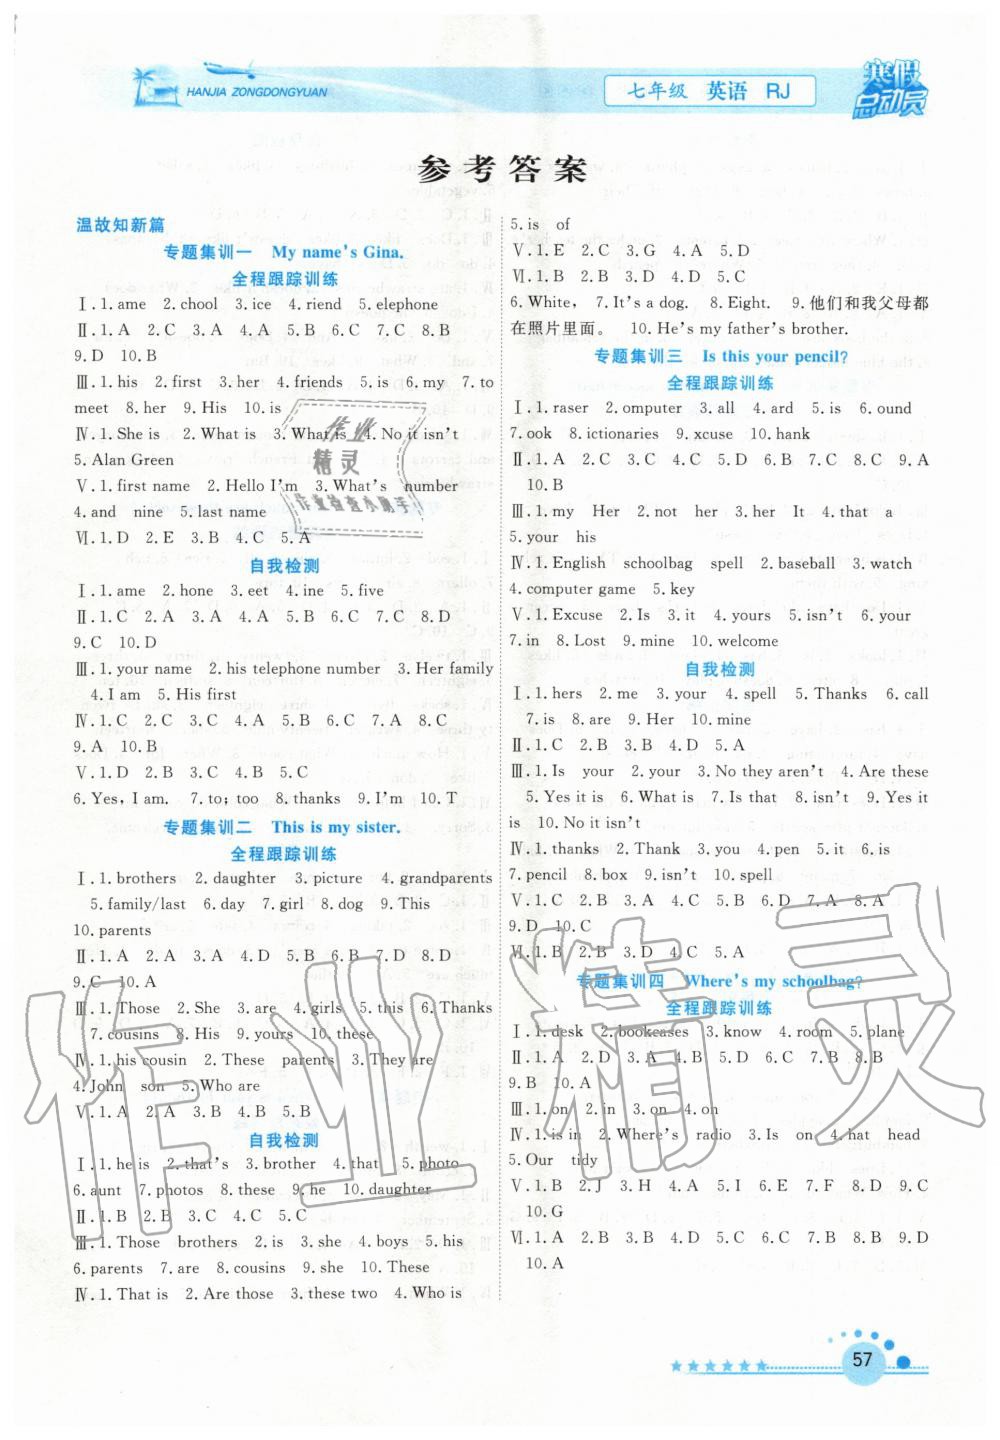 HANJIA ZONGDONGYUAN
七年级 英语 RJ
寒假
总动员
参考答案
温故知新篇
专题集训一 My name's Gina.
全程跟踪训练
Ⅰ.1.ame 2.chool 3.ice 4.riend 5.elephone
Ⅱ.1.A 2.C 3.A 4.A 5.B 6.C 7.C 8.B
9.D 10.B
Ⅲ.1.his 2.first 3.her 4.friends 5.is 6.my 7.to
meet 8.her 9.His 10.is
Ⅳ.1.She is 2.What is 3.What is 4.No it isn't
5.Alan Green
Ⅴ.1.first name 2.Hello I'm 3.What's number
4.and nine 5.last name
Ⅵ.1.D 2.E 3.B 4.C 5.A
自我检测
Ⅰ.1.ame 2.hone 3.eet 4.ine 5.five
Ⅱ.1.D 2.A 3.A 4.D 5.B 6.C 7.C 8.D
9.C 10.D
Ⅲ.1.your name 2.his telephone number 3.Her family
4.I am 5.His first
Ⅳ.1.C 2.C 3.C 4.A 5.B 6.C 7.A 8.C
9.A 10.B
Ⅴ.1.D 2.A 3.A 4.B 5.C
6.Yes, I am. 7.to; too 8.thanks 9.I'm 10.T
专题集训二 This is my sister.
全程跟踪训练
Ⅰ.1.brothers 2.daughter 3.picture 4.grandparents
5.family/last 6.day 7.girl 8.dog 9.This
10.parents
Ⅱ.1.D 2.A 3.A 4.D 5.B 6.B 7.D 8.D
9.C 10.A
Ⅲ.1.Those 2.She 3.are 4.girls 5.this 6.Thanks
7.cousins 8.His 9.yours 10.these
Ⅳ.1.his cousin 2.These parents 3.They are
4.John son 5.Who are
Ⅴ.1.A 2.A 3.B 4.B 5.B
自我检测
Ⅰ.1.he is 2.that's 3.brother 4.that 5.photo
6.aunt 7.photos 8.these 9.he 10.daughter
Ⅱ.1.B 2.B 3.C 4.C 5.C
Ⅲ.1.Those brothers 2.is 3.she 4.boys 5.his
6.parents 7.are 8.cousins 9.she 10.These
Ⅳ.1.That is 2.Are those 3.these two 4.Who is
5.is of
Ⅴ.1.E 2.C 3.G 4.A 5.D
Ⅵ.1.D 2.C 3.A 4.B 5.C
6.White, 7.It's a dog. 8.Eight. 9.他们和我父母都
在照片里面。 10.He's my father's brother.
专题集训三 Is this your pencil?
全程跟踪训练
Ⅰ.1.raser 2.omputer 3.all 4.ard 5.is 6.ound
7.ook 8.ictionaries 9.xcuse 10.hank
Ⅱ.1.A 2.C 3.C 4.B 5.D 6.B 7.C 8.C 9.A
10.B
Ⅲ.1.my Her 2.not her 3.her It 4.that a
5.your his
Ⅳ.1.English schoolbag spell 2.baseball 3.watch
4.computer game 5.key
Ⅴ.1.Excuse 2.Is 3.it 4.yours 5.isn't 6.your
7.in 8.Lost 9.mine 10.welcome
自我检测
Ⅰ.1.hers 2.me 3.your 4.spell 5.Thanks 6.call
7.is 8.are 9.Her 10.mine
Ⅱ.1.C 2.B 3.B 4.D 5.A
Ⅲ.1.Is your 2.your 3.No they aren't 4.Are these
5.Yes it is 6.What is 7.Is that 8.isn't 9.Yes it
is 10.No it isn't
Ⅳ.1.thanks 2.Thank 3.you 4.pen 5.it 6.is
7.pencil 8.box 9.isn't 10.spell
Ⅴ.1.C 2.B 3.A 4.B 5.C 6.D 7.A 8.A
9.D 10.C
Ⅵ.1.B 2.B 3.D 4.C 5.A
专题集训四 Where's my schoolbag?
全程跟踪训练
Ⅰ.1.desk 2.bookcases 3.know 4.room 5.plane
Ⅱ.1.A 2.D 3.A 4.B 5.D 6.A 7.B 8.B
9.B 10.A
Ⅲ.1.on 2.in 3.on 4.on
Ⅳ.1.is in 2.Where's radio 3.Is on 4.hat head
5.Our tidy
Ⅴ.1.B 2.J 3.H 4.A 5.I 6.E 7.F 8.D 9.C
10.G
Ⅵ.1.A 2.B 3.A 4.B 5.D 6.C 7.B 8.B 9.D
10.A
57
作业
精灵
作业检查小助手
作业精灵